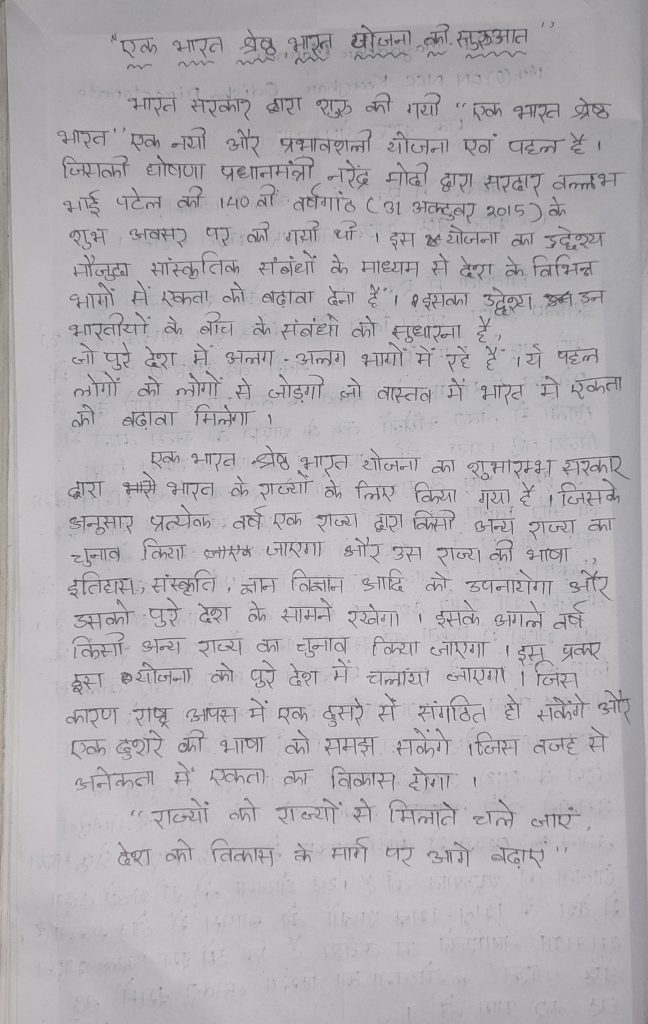 "एक भारत श्रेष्ठ भारत योजना की सुरुआत"
भारत सरकार द्वारा शुरु की गयी "एक भारत श्रेष्ठ
भारत" एक नयी और प्रभावशाली योजना एवं पहल है।
जिसकी घोषणा प्रधानमंत्री नरेंद्र मोदी द्वारा सरदार वल्लभ
भाई पटेल की 140 वी वर्षगांठ (31 अक्टुबर 2015) के
शुभ अवसर पर की गयी थी। इस योजना का उद्देश्य
मौजुदा सांस्कृतिक संबंधों के माध्यम से देश के विभिन्न
भागों में एकता को बढावा देना है"। इसका उद्देश्य उन
भारतीयों के बीच के संबंधों को सुधारना है,
जो पुरे देश में अलग-अलग भागों में रहें हैं। ये पहल
लोगों को लोगों से जोड़गी जो वास्तव में भारत में एकता
को बढावा मिलेगा।
एक भारत श्रेष्ठ भारत योजना का शुभारम्भ सरकार
द्वारा भारत के राज्यों के लिए किया गया है। जिसके
अनुसार प्रत्येक वर्ष एक राज्य द्वारा किसी अन्य राज्य का
चुनाव किया जाएगा और उस राज्य की भाषा,
इतिहास, संस्कृति, ज्ञान विज्ञान आदि को उपनायेगा और
उसको पुरे देश के सामने रखेगा। इसके अगले वर्ष
किसी अन्य राज्य का चुनाव किया जाएगा। इस प्रकार
इस योजना को पुरे देश में चलाया जाएगा। जिस
कारण राष्ट्र आपस में एक दुसरे से संगठित हो सकेंगे और
एक दुशरे की भाषा को समझ सकेंगे। जिस वजह से
अनेकता में एकता का विकास होगा।
"राज्यों को राज्यों से मिलाते चले जाएं,
देश को विकास के मार्ग पर आगे बढाएं"